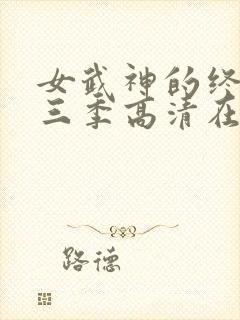 女武神的终
三季高清在
路德